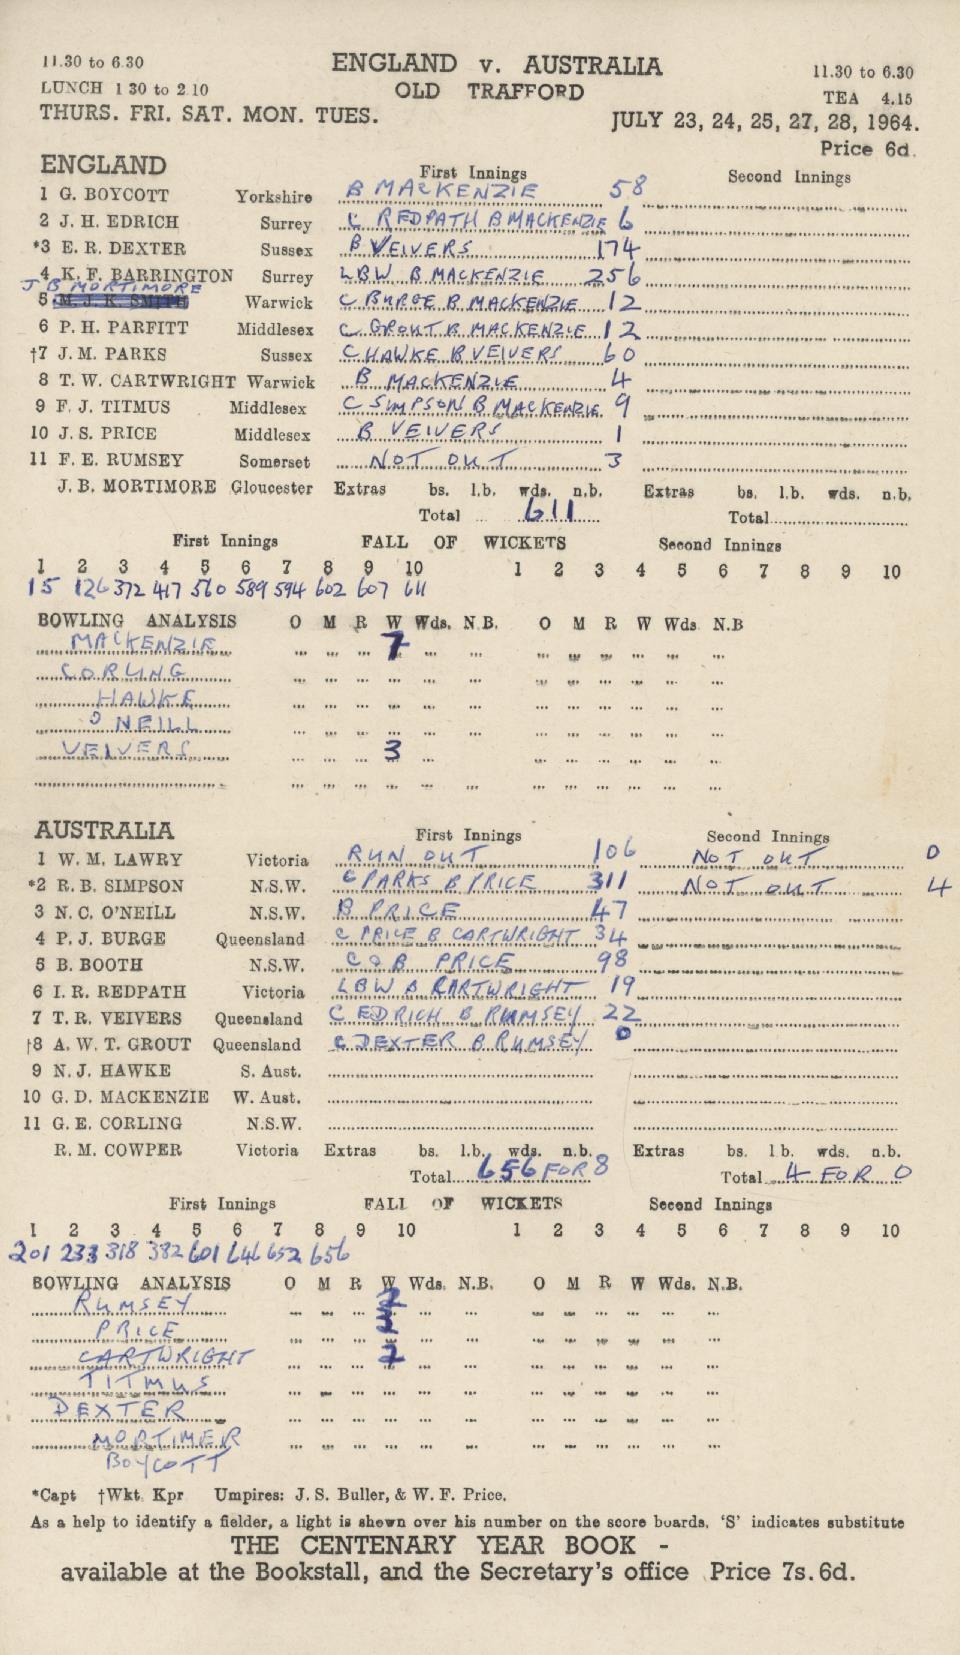 11.30 to 6.30 ENGLAND v. AUSTRALIA 11.30 to 6.30
LUNCH 1 30 to 2 10 OLD TRAFFORD TEA 4.15
THURS. FRI. SAT. MON. TUES. JULY 23, 24, 25, 27, 28, 1964.
Price 6d.
ENGLAND First Innings Second Innings
1 G. BOYCOTT Yorkshire B MACKENZIE 58
2 J. H. EDRICH Surrey C REDPATH B MACKENZIE 6
*3 E. R. DEXTER Sussex B VEIVERS 174
4 K. F. BARRINGTON Surrey LBW B MACKENZIE 256
J B MORTIMORE
5 M. J. K. SMITH Warwick C BURGE B MACKENZIE 12
6 P. H. PARFITT Middlesex C GROUT B MACKENZIE 12
†7 J. M. PARKS Sussex C HAWKE B VEIVERS 60
8 T. W. CARTWRIGHT Warwick B MACKENZIE 4
9 F. J. TITMUS Middlesex C SIMPSON B MACKENZIE 9
10 J. S. PRICE Middlesex B VEIVERS 1
11 F. E. RUMSEY Somerset NOT OUT 3
J. B. MORTIMORE Gloucester Extras bs. l.b. wds. n.b. Extras bs. l.b. wds. n.b.
Total 611 Total
First Innings FALL OF WICKETS Second Innings
1 2 3 4 5 6 7 8 9 10 1 2 3 4 5 6 7 8 9 10
15 126 372 417 560 589 594 602 607 611
BOWLING ANALYSIS O M R W Wds. N.B. O M R W Wds N.B
MACKENZIE 7
CORLING
HAWKE
O NEILL
VEIVERS 3
AUSTRALIA First Innings Second Innings
1 W. M. LAWRY Victoria RUN OUT 106 NOT OUT 0
*2 R. B. SIMPSON N.S.W. C PARKS B PRICE 311 NOT OUT 4
3 N. C. O'NEILL N.S.W. B PRICE 47
4 P. J. BURGE Queensland C PRICE B CARTWRIGHT 34
5 B. BOOTH N.S.W. C & B PRICE 98
6 I. R. REDPATH Victoria LBW B CARTWRIGHT 19
7 T. R. VEIVERS Queensland C EDRICH B RUMSEY 22
†8 A. W. T. GROUT Queensland C DEXTER B RUMSEY 0
9 N. J. HAWKE S. Aust.
10 G. D. MACKENZIE W. Aust.
11 G. E. CORLING N.S.W.
R. M. COWPER Victoria Extras bs. l.b. wds. n.b. Extras bs. l.b. wds. n.b.
Total 656 FOR 8 Total 4 FOR 0
First Innings FALL OF WICKETS Second Innings
1 2 3 4 5 6 7 8 9 10 1 2 3 4 5 6 7 8 9 10
201 233 318 382 601 646 652 656
BOWLING ANALYSIS O M R W Wds. N.B. O M R W Wds. N.B.
RUMSEY 2
PRICE
CARTWRIGHT 2
TITMUS
DEXTER
MORTIMER
BOYCOTT
*Capt †Wkt Kpr Umpires: J. S. Buller, & W. F. Price.
As a help to identify a fielder, a light is shewn over his number on the score boards, 'S' indicates substitute
THE CENTENARY YEAR BOOK -
available at the Bookstall, and the Secretary's office Price 7s. 6d.